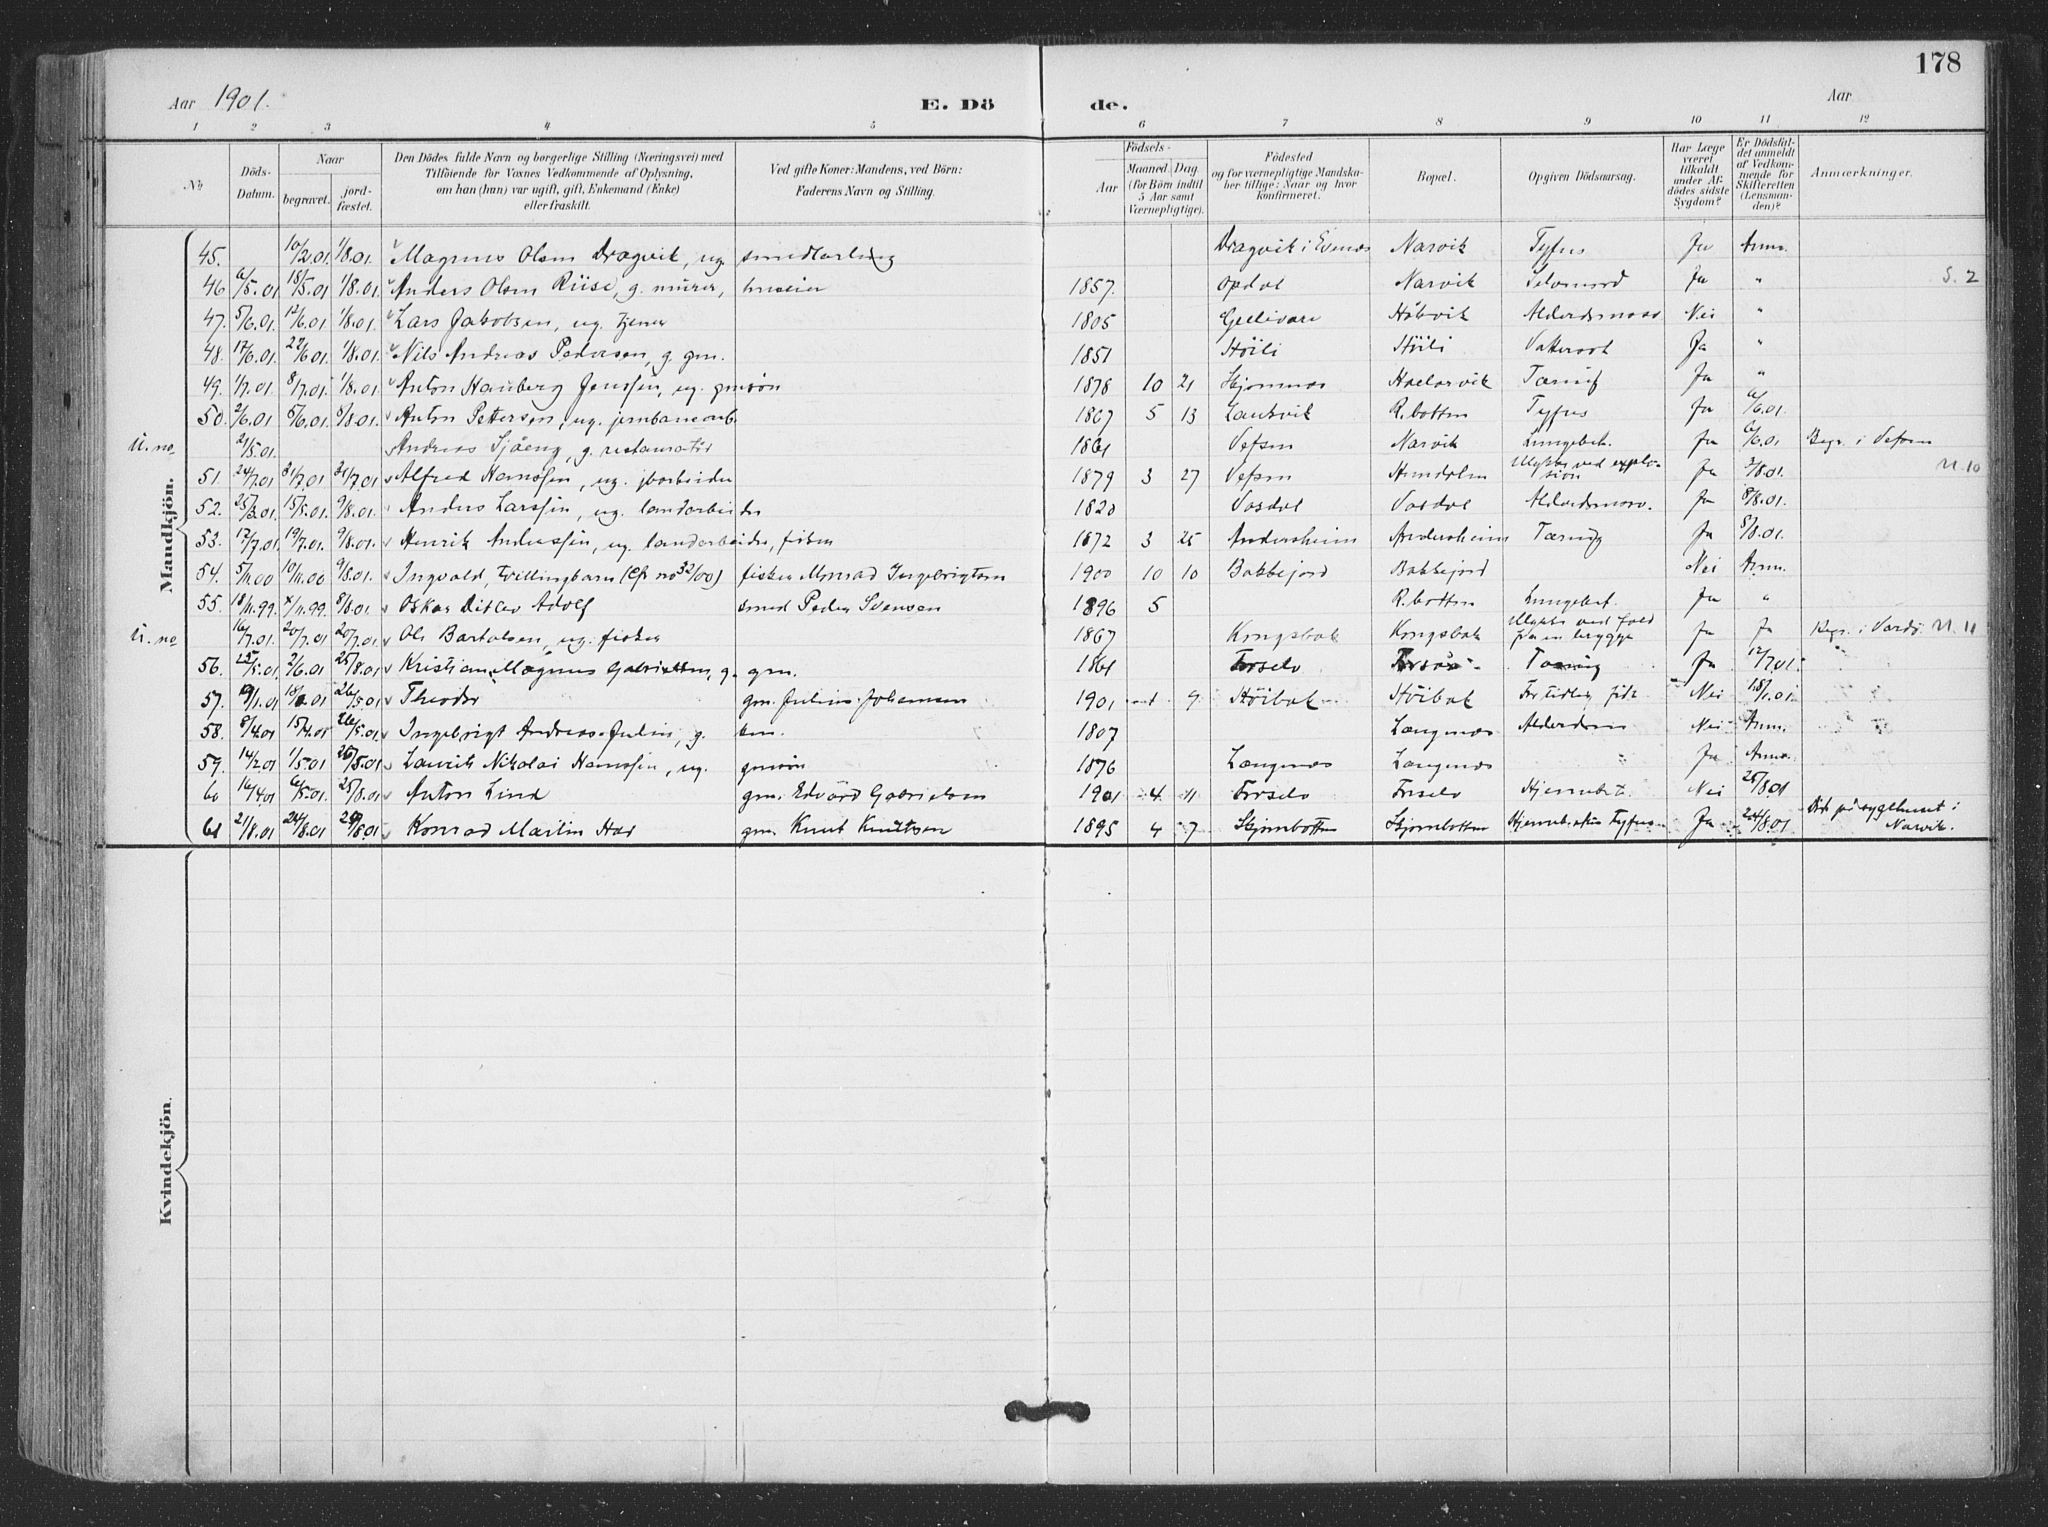 178
Aar 1901. E. Dö de. Aar
1 2 3 4 5 6 7 8 9 10 11 12
No Döds-Datum. Naar begravet. jord-fæstet. Den Dödes fulde Navn og borgerlige Stilling (Næringsvei) med Tilföiende for Voxnes Vedkommende af Oplysning, om han (hun) var ugift, gift, Enkemand (Enke) eller fraskilt. Ved gifte Koner: Mandens, ved Börn: Faderens Navn og Stilling. Födsels- Aar Maaned. Dag. (for Börn indtil 5 Aar samt Værnepligtige). Födested og for værnepligtige Mandskaber tillige: Naar og hvor konfirmeret. Bopæl. Opgiven Dödsaarsag. Har Læge været tilkaldt under Afdödes sidste Sygdom? Er Dödsfaldet anmeldt af Vedkommende for Skifteretten (Lensmanden)? Anmærkninger.
Mandkjön.
45. 10/2.01. 1/8.01. Magnus Olsen Dragvik, ug. smedlærling Dragvik i Evenæs Narvik Tyfus Ja Anm.
46 6/5.01 15/5.01 1/8.01. Anders Olsen Riise, g. murer, 1857. Opdal Narvik Selvmord Ja " S. 2
47. 5/6.01. 12/6.01 1/8.01. Lars Jakobsen, ug. tjener 1805 Gellivare Håkvik Alderdom Nei "
48. 17/6.01. 27/6.01 1/8.01. Nils Andreas Pedersen, g. gm. 1851 Höili Höili Vattersot Ja "
49. 1/7.01 8/7.01 1/8.01. Anton Hauberg Jenssen, ug. gmsön 1878 10 21 Skjomnes Tæring Ja "
50. 2/6.01. 5/6.01. 8/8.01. Anton Pettersen, ug. jernbanearb. 1867 5 13 Lankvik R.botten Tyfus Ja 6/6.01.
U. no 21/5.01. Andreas Sjåeng, g. restauratör 1861 Vefsen Narvik Lungebet. Ja 6/6.01 Begr. i Vefsen
51. 24/7.01 31/7.01 31/7.01 Alfred Hanssen, ug. jbarbeider 1879 3 27 Vefsen Hundalen Ulykke ved explosion Ja 3/8.01. U. 10
52. 25/3.01. 15/5.01. 9/8.01. Anders Larssen, ug. landarbeider 1820 Vasdal Vasdal Alderdom. Ja 8/8.01.
53. 12/7.01. 19/7.01 9/8.01. Henrik Anderssen, ug. landarbeider, fisker 1872 3 25 Andersheim Andersheim Tæring Ja 8/8.01.
54. 5/11.00 10/11.00 9/8.01. Ingvald, tvillingbarn (cfr no 32/00) fisker Monrad Ingebrigtsen 1900 10 10 Bakkejord Bakkejord Nei Anm.
55. 18/11.99. 9/8.01 Oskar Ditlev Adolf smed Peder Svensen 1896 5 R.botten Lungebet. Ja "
U. no 16/7.01. 20/7.01 20/7.01 Ole Bartolsen, ug. fisker 1867 Kongsbak Kongsbak Ulykke ved fald fra en brygge Ja Ja Begr. i Vardö. U. 11
56. 25/5.01 2/6.01 25/8.01 Kristian Magnus Gabrielsen, g. gm. 1861 Forselv Tæring Ja 12/7.01
57. 9/1.01 26/5.01 Theodor gm. Julius Johansen 1901 1 9 Höibak Höibak For tidlig födt Nei 18/1.01
58. 8/4.01 15/4.01 26/5.01. Ingebrigt Andreas Julius, g. 1807 Længenæs Alderdom Nei Anm.
59. 14/2.01 1/5.01 26/5.01 Laurits Nikolai Hanssen, ug. gmsön 1876 Længenæs Længenæs Ja Anm.
60 16/4.01 6/5.01. 25/8.01 Anton Lind gm. Edvard Gabrielsen 1901 4 11 Forselv Forselv Hjernebet. Nei 25/8.01
61 21/8.01 24/8.01 Konrad Martin Hak gm. Knut Knutsen 1895 4 7 Skjombotten Skjombotten Hjernebet. efter Tyfus Ja 24/8.01 Död på sygehuset i Narvik.
Kvindekjön.